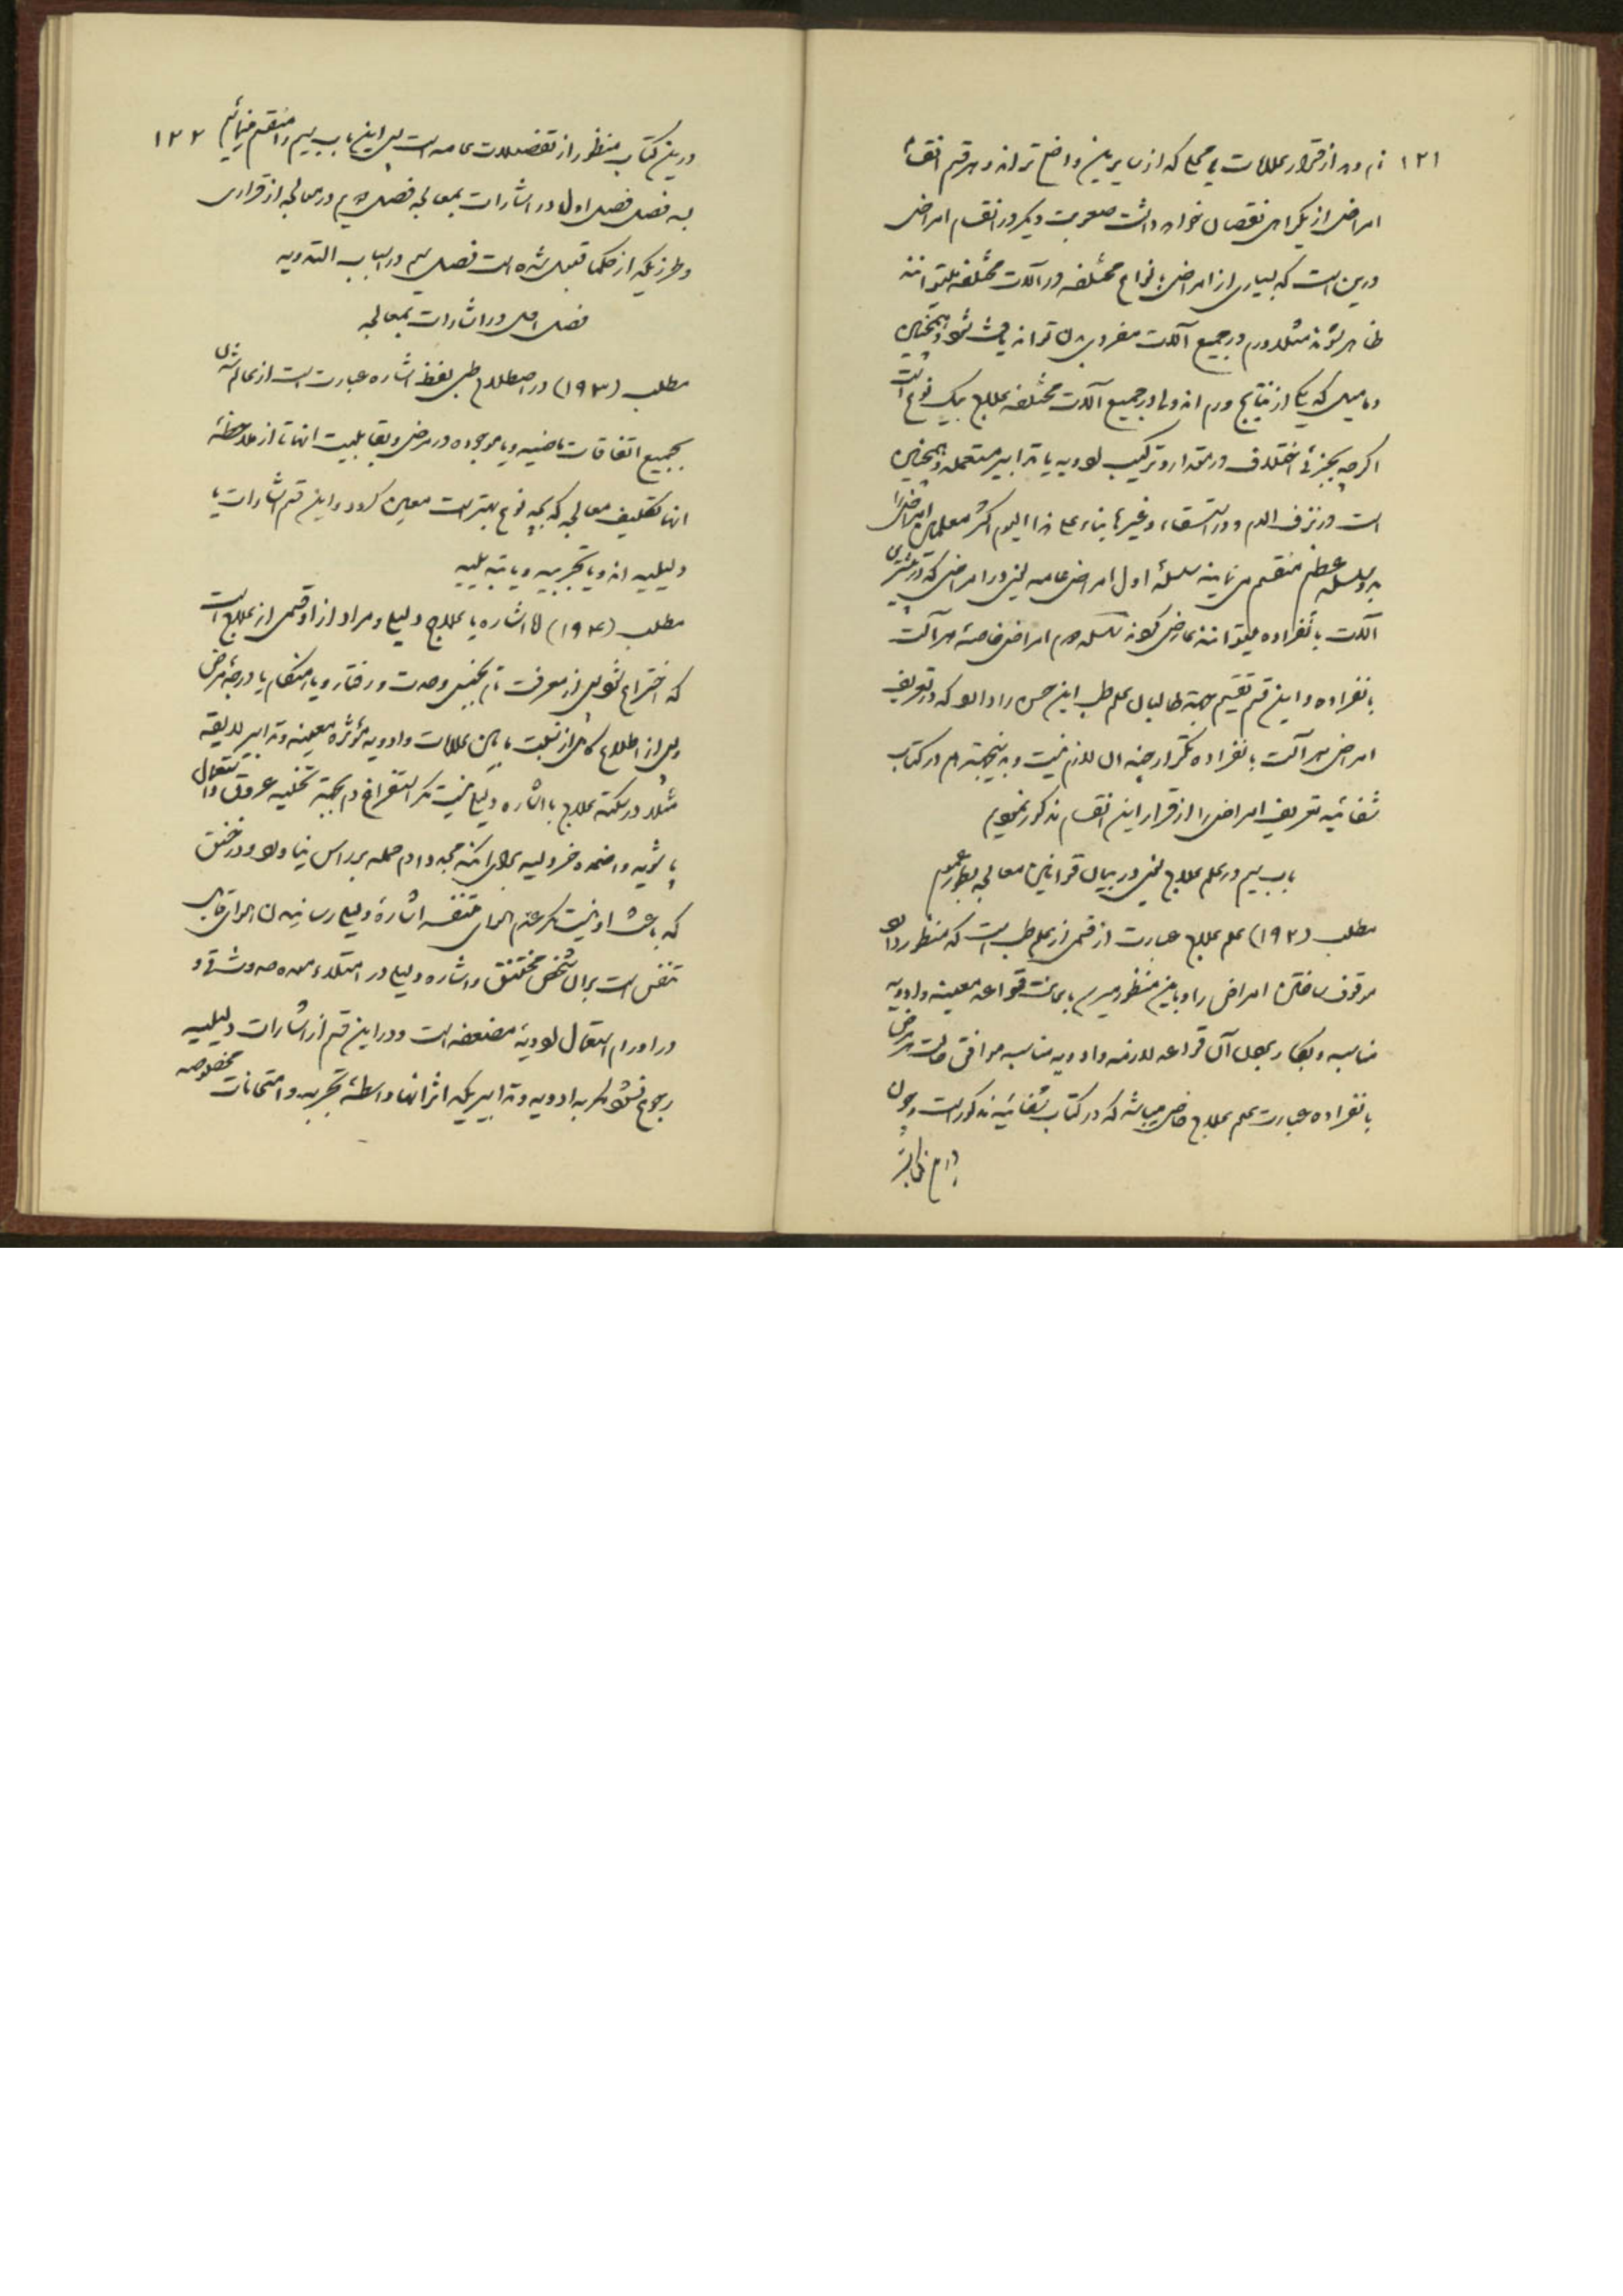 ۱۲۱
نام دهد از قرار علامات و محلی که از سایرین واضح تراند و هر قسم انقسام
امراض از یکدیگر نقصان خواهد داشت صعوبت دیگر در انقسام امراض
درین است که بسیاری از امراض بانواع مختلفه در آلات مختلفه میتوانند
ظاهر شوند مثلا ورم در جمیع آلات مفرده بدن تواند یافت شود و همچنین
دمامیل که یکی از نتایج ورم اند ولی در جمیع آلات مختلفه علاج بیک نوع است
اگرچه بجزئی اختلاف در مقدار و ترکیب ادویه یا تدابیر مستعمله و همچنین
است در نزف الدم و در استسقاء و غیرها بناء علی هذا الیوم اکثر معلمین امراض را
بدو سلسله عظم منقسم می نمایند سلسلهٔ اول امراض عامه یعنی در امراضی که در بیشتری
آلات بانفراده میتوانند عارض گردند سلسله دوم امراض خاصهٔ هر آلت
بانفراده و این قسم تقسیم بجهة طالبان علم طب این حسن را دارد که در تعریف
امراض هر آلت بانفراده تکرار چندان لازم نیست و بدینجهة هم در کتاب
شفائیه تعریف امراض را از قرار این انقسام مذکور نمودیم
باب سیم در علم علاج یعنی در بیان قوانین معالجه بطور عموم
مطلب (۱۹۲) علم علاج عبارت از قسمی از علم طب است که منظور دارد
موقوف ساختن امراض را و باین منظور میرسد باعانت قواعد معینه و ادویه
مناسبه و بکار بردن آن قواعد لازمه و ادویه مناسبه موافق حالت هر مرض
بانفراده عبارت علم علاج خاص میباشد که در کتاب شفائیه مذکور است و چون
۱۲۲
درین کتاب منظور از تفضیلات عامه است پس این باب سیم را منقسم مینمائیم
بسه فصل فصل اول در اشارات بمعالجه فصل دویم در معالجه از قراری
و طرزیکه از حکما قبول شده است فصل سیم در اسباب التدویه
فصل اول در اشارات بمعالجه
مطلب (۱۹۳) در اصطلاح طبی لفظ اشاره عبارت است از عالم شدن
بجمیع اتفاقات ماضیه و یا موجوده در مرض و بقابلیت انها تا از ملاحظهٔ
انها تکلیف معالجه که بچه نوع بهتر است معین گردد و این قسم اشارات یا
دلیلیه اند و یا تجربیه و یا تقبلیه
مطلب (۱۹۴) اما اشاره یا علاج دلیلی و مراد از او قسمی از علاج است
که اختراع شود پس از معرفت تام بجنس و حدت و رفتار و یا هنگام یا درجهٔ مرض
و پس از اطلاع کامل از نسبت مابین علامات و ادویه مؤثره معینه و تدابیر لایقه
مثلا در سکته علاج باشاره دلیلی نیست مگر استفراغ دم بجهة تخلیه عروق و استعمال
پاشویه و اضمده خردلیه برای اینکه مجددا دم حمله بر راس نیاورد و در خنق
که باعث او نیست مگر عدم هوای متنفسه اشارهٔ دلیلی رسانیدن هوای قابل
تنفس است برای شخص مختنق و اشاره دلیلی در امتلاء معده صوم و شقی و
در اورام استعمال ادویهٔ مضعفه است و در این قسم از اشارات دلیلیه
رجوع نشود مگر به ادویه و تدابیریکه اثر انها بواسطهٔ تجربه و امتحانات مخصوصه